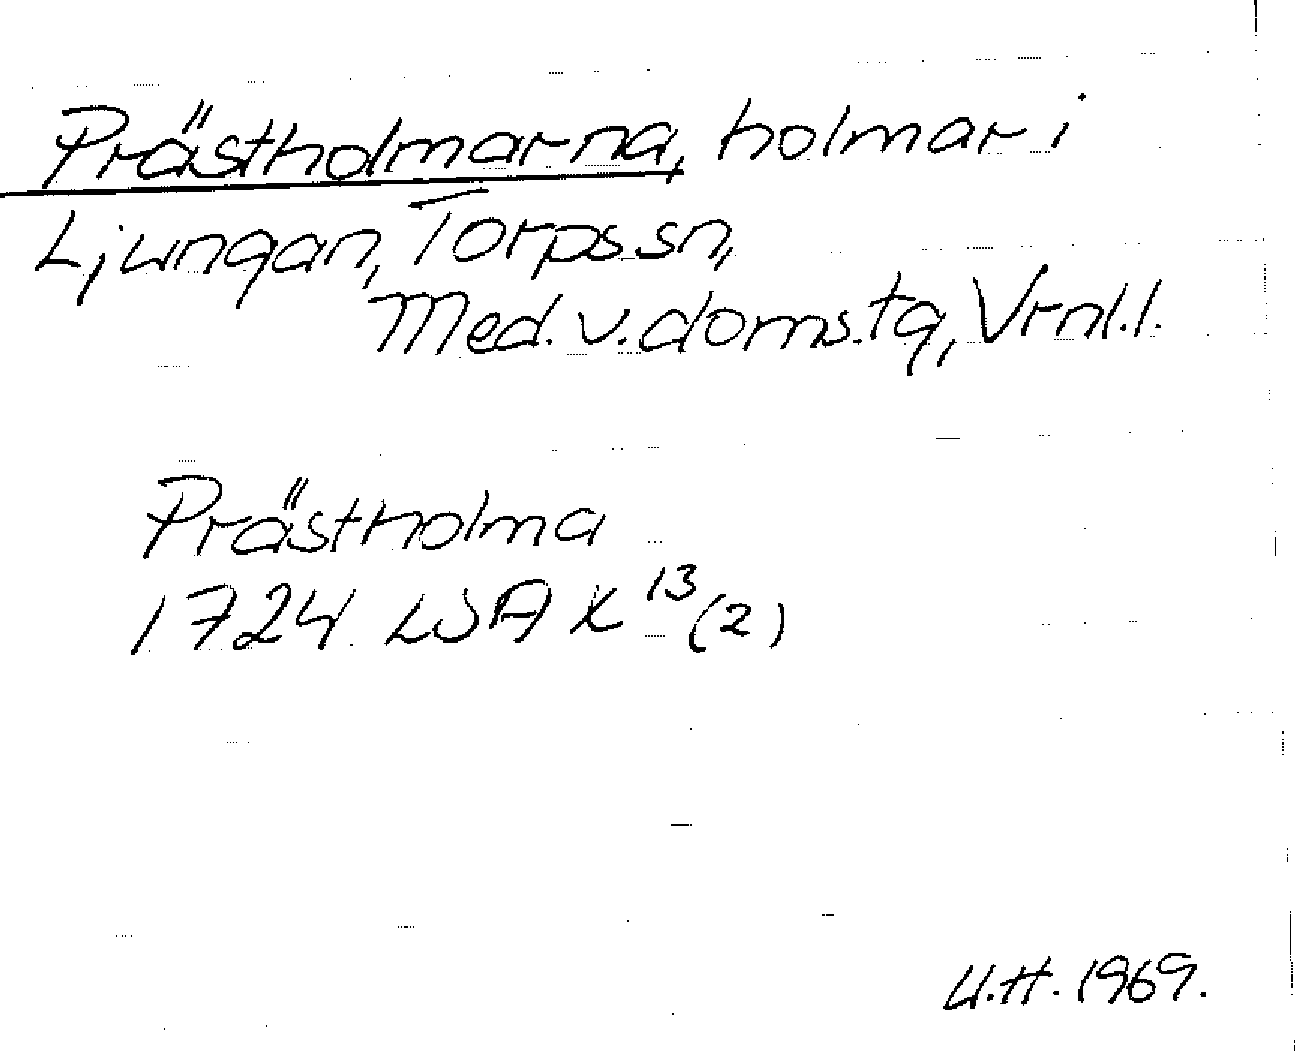 Prästholmarna, holmar i
Ljungan, Torps sn,
Med. v. doms. tg, Vrnl. l.
Prästholma
1724 LSA X 13 (2)
U.H. 1969.